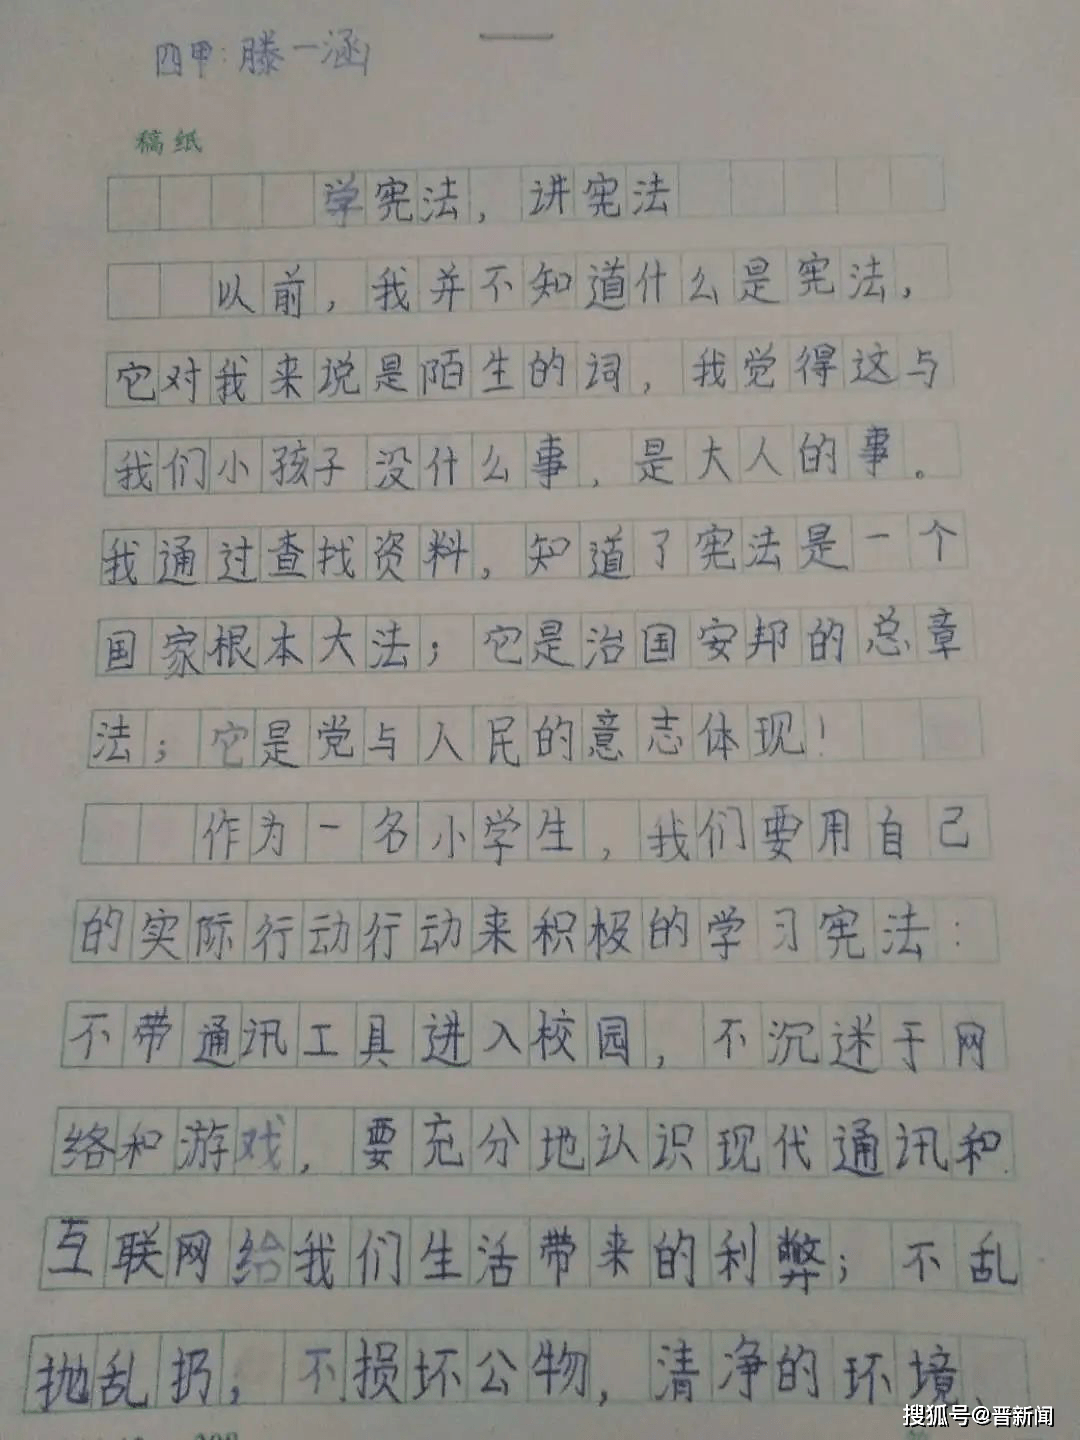 四甲:滕一涵
稿纸
学宪法，讲宪法
以前，我并不知道什么是宪法，
它对我来说是陌生的词，我觉得这与
我们小孩子没什么事，是大人的事。
我通过查找资料，知道了宪法是一个
国家根本大法；它是治国安邦的总章
法；它是党与人民的意志体现！
作为一名小学生，我们要用自己
的实际行动行动来积极的学习宪法：
不带通讯工具进入校园，不沉迷于网
络和游戏，要充分地认识现代通讯和
互联网给我们生活带来的利弊；不乱
抛乱扔，不损坏公物，清净的环境、
搜狐号@晋新闻